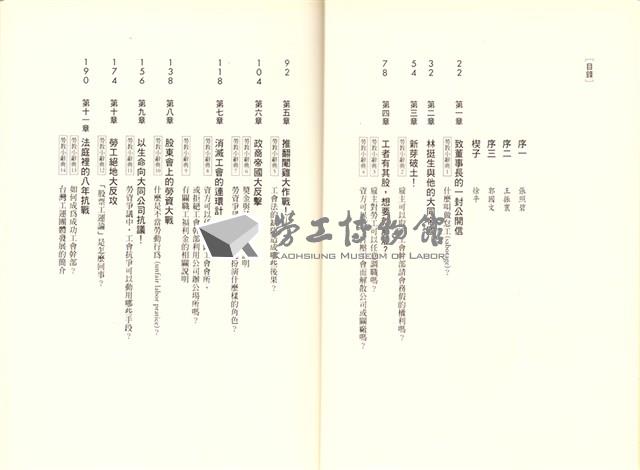 [目錄]
序一 張照碧
序二 王振寰
序三 郭國文
楔子 徐平
22 第一章 致董事長的一封公開信
勞教小辭典1 什麼叫做怠工(sabotage)?
32 第二章 林挺生與他的大同
54 第三章 新芽破土!
勞教小辭典2 雇主可以 工會幹部請會務假的權利嗎?
78 第四章 工者有其股,想要 ?
勞教小辭典3 雇主對勞工可以任 調職嗎?
勞教小辭典4 資方可以 壓工會而解散公司或關廠嗎?
92 第五章 推翻閹雞大作戰!
勞教小辭典5 工會法的 造成哪些後果?
104 第六章 政商帝國大反擊
勞教小辭典6 獎金與
勞教小辭典7 勞資爭 扮演什麼樣的角色?
118 第七章 消滅工會的連環計
勞教小辭典8 資方可以 工會會所,
或拒絕工會幹部利用公司辦公場所嗎?
勞教小辭典9 有關職工福利金的相關說明
138 第八章 股東會上的勞資大戰
勞教小辭典10 什麼是不當勞動行為(unfair labor pratice)?
156 第九章 以生命向大同公司抗議!
勞教小辭典11 勞資爭議中,工會抗爭可以動用哪些手段?
174 第十章 勞工絕地大反攻
勞教小辭典12 「股票工運論」是怎麼回事?
190 第十一章 法庭裡的八年抗戰
勞教小辭典13 如何成為成功工會幹部?
勞教小辭典14 台灣工運團體發展的簡介
勞工博物館
KAOHSIUNG MUSEUM OF LABOR